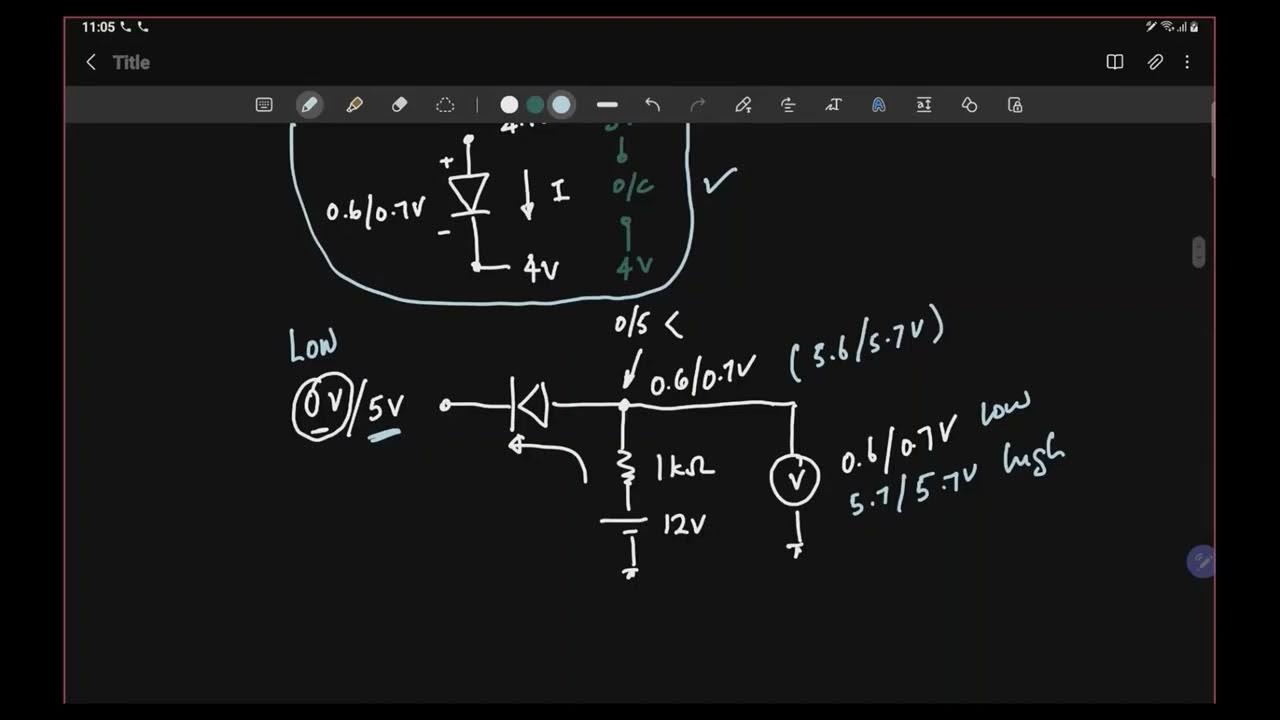 11:05
Title
0.6/0.7V
+
I
-
4V
O/C
4V
0/5 <
Low
0V/5V
0.6/0.7V
(5.6/5.7V)
1kΩ
12V
V
0.6/0.7V Low
5.7/5.7V high